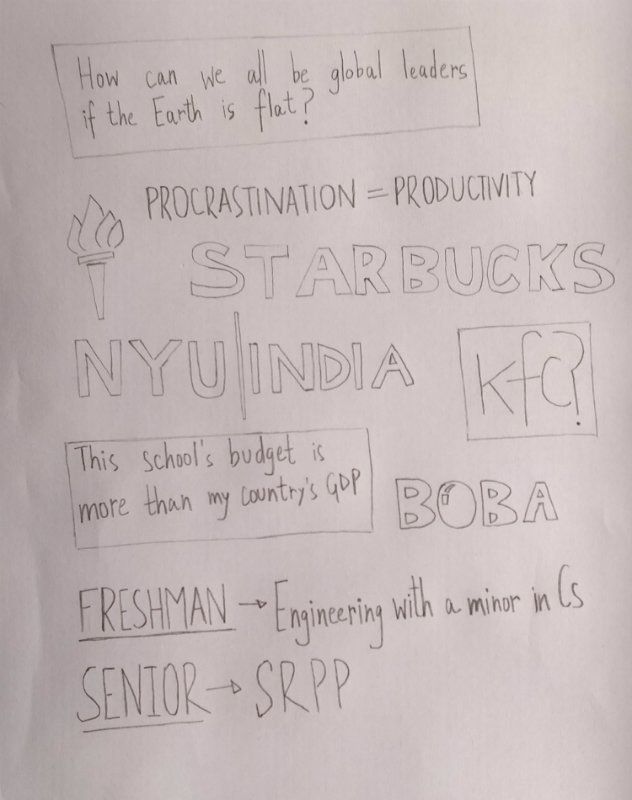 How can we all be global leaders
if the Earth is flat?
PROCRASTINATION = PRODUCTIVITY
STARBUCKS
NYU|INDIA
kfc?
This school's budget is
more than my country's GDP
BOBA
FRESHMAN → Engineering with a minor in Cs
SENIOR → SRPP